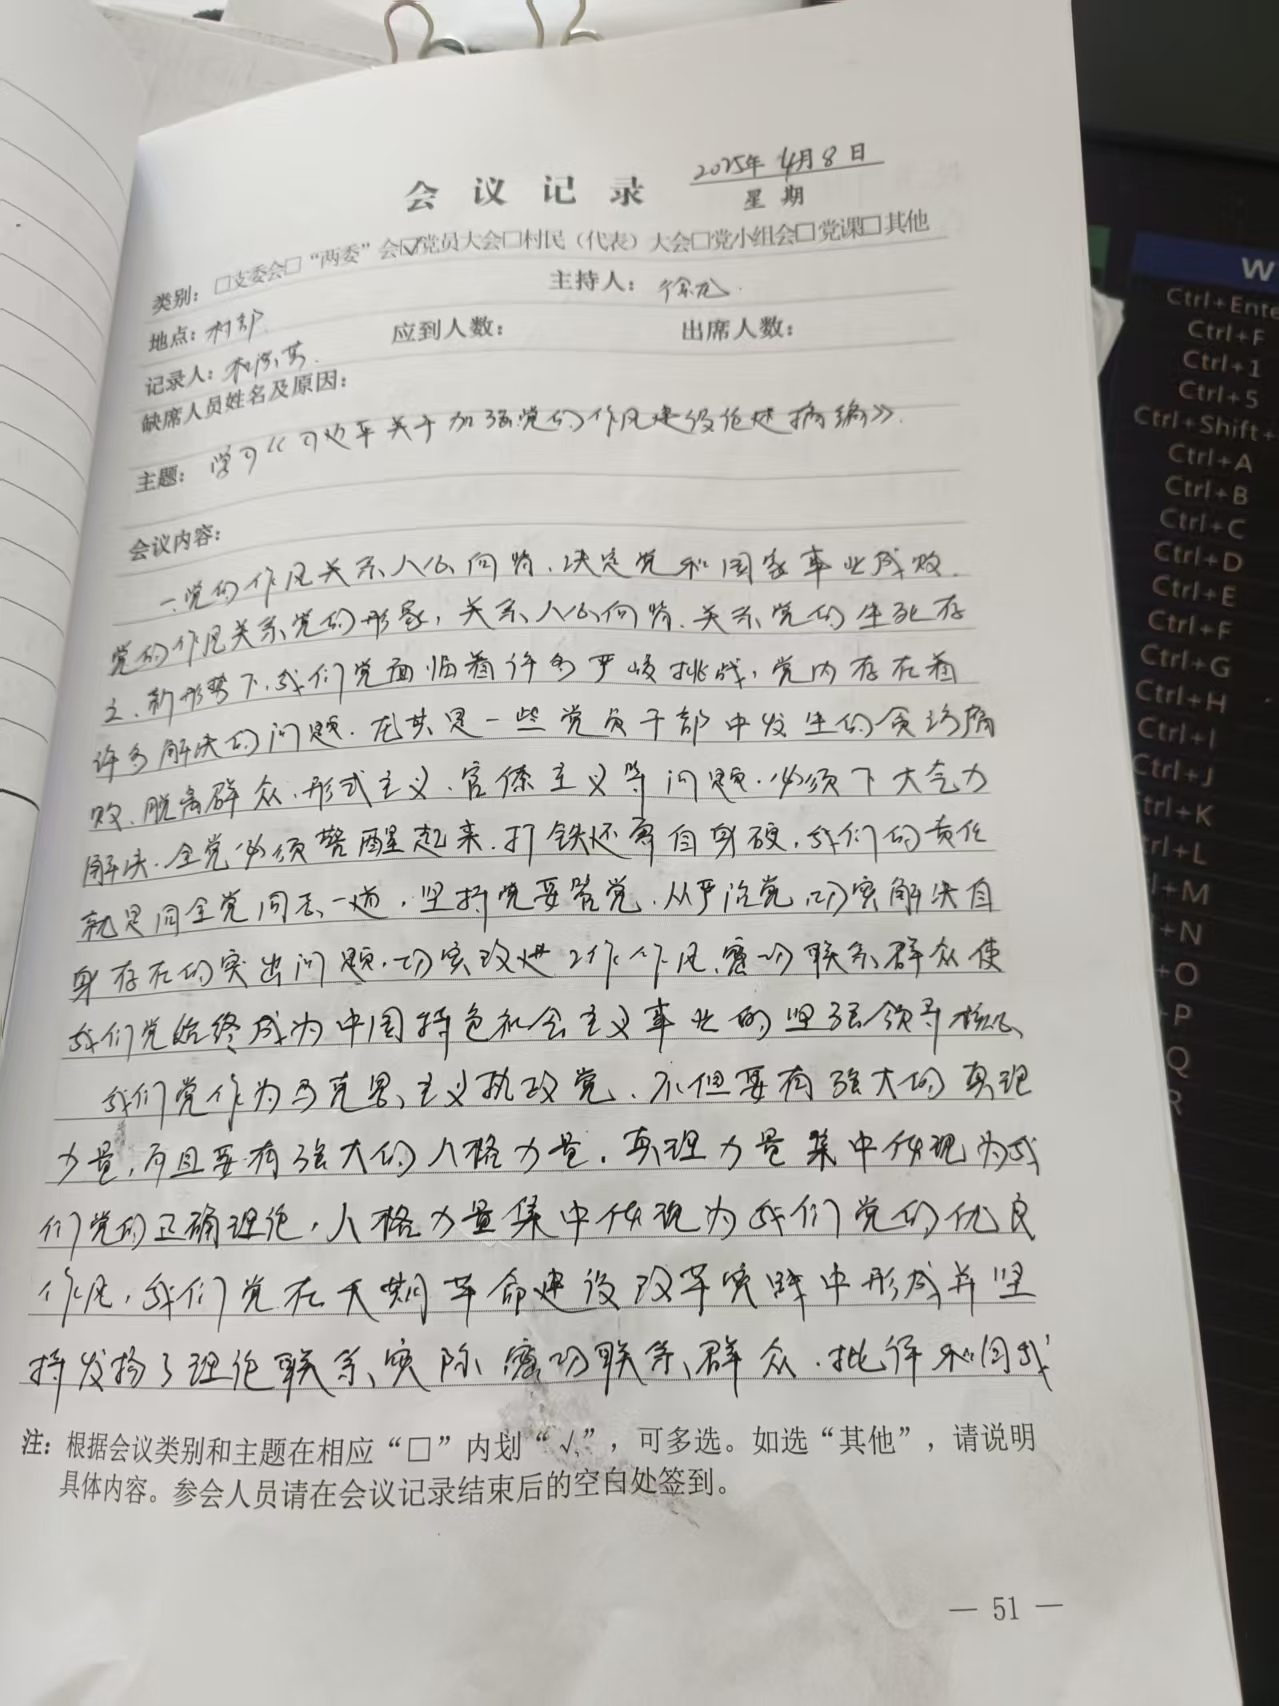 会议记录
2025年4月8日
星期
类别：□支委会□“两委”会☑党员大会□村民（代表）大会□党小组会□党课□其他
地点：村部 主持人：徐龙
记录人： 应到人数： 出席人数：
缺席人员姓名及原因：
主题：学习《习近平关于加强党的作风建设论述摘编》.
会议内容：
一.党的作风关系人心向背、决定党和国家事业成败.
党的作风关系党的形象，关系人心向背.关系党的生死存
亡.新形势下，我们党面临着许多严峻挑战，党内存在着
许多解决的问题.尤其是一些党员干部中发生的贪污腐
败、脱离群众、形式主义、官僚主义等问题.必须下大气力
解决.全党必须警醒起来.打铁还需自身硬.我们的责任
就是同全党同志一道，坚持党要管党、从严治党，切实解决自
身存在的突出问题.切实改进工作作风、密切联系群众使
我们党始终成为中国特色社会主义事业的坚强领导核心、
我们党作为马克思主义执政党、不但要有强大的真理
力量，而且要有强大的人格力量.真理力量集中体现为我
们党的正确理论，人格力量集中体现为我们党的优良
作风，我们党在长期革命建设改革实践中形成并坚
持发扬了理论联系实际密切联系群众.批评和自我
注：根据会议类别和主题在相应“□”内划“√”，可多选。如选“其他”，请说明
具体内容。参会人员请在会议记录结束后的空白处签到。
— 51 —
W
Ctrl+Ente
Ctrl+F
Ctrl+1
Ctrl+5
Ctrl+Shift+
Ctrl+A
Ctrl+B
Ctrl+C
Ctrl+D
Ctrl+E
Ctrl+F
Ctrl+G
Ctrl+H
Ctrl+I
Ctrl+J
trl+K
rl+L
l+M
+N
+O
P
Q
R